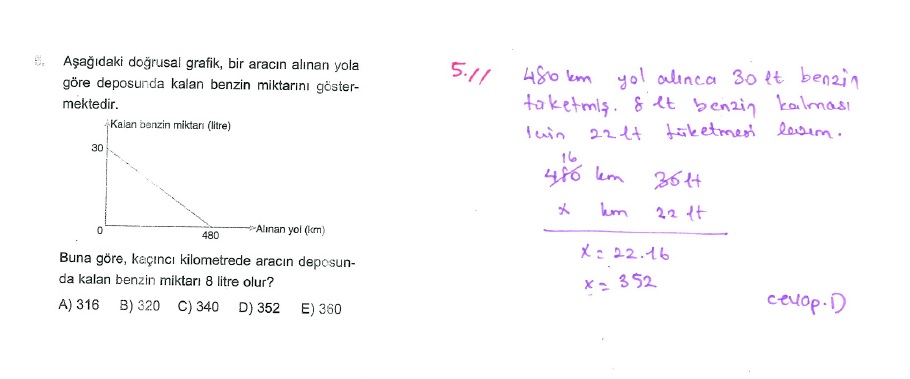 Aşağıdaki doğrusal grafik, bir aracın alınan yola
göre deposunda kalan benzin miktarını göster-
mektedir.
Kalan benzin miktarı (litre)
30
0
480
Alınan yol (km)
Buna göre, kaçıncı kilometrede aracın deposun-
da kalan benzin miktarı 8 litre olur?
A) 316 B) 320 C) 340 D) 352 E) 360
5.//
480 km yol alınca 30 lt benzin
tüketmiş. 8 lt benzin kalması
için 22 lt tüketmesi lazım.
16
480 km 30 lt
x km 22 lt
x = 22.16
x = 352
cevap.D